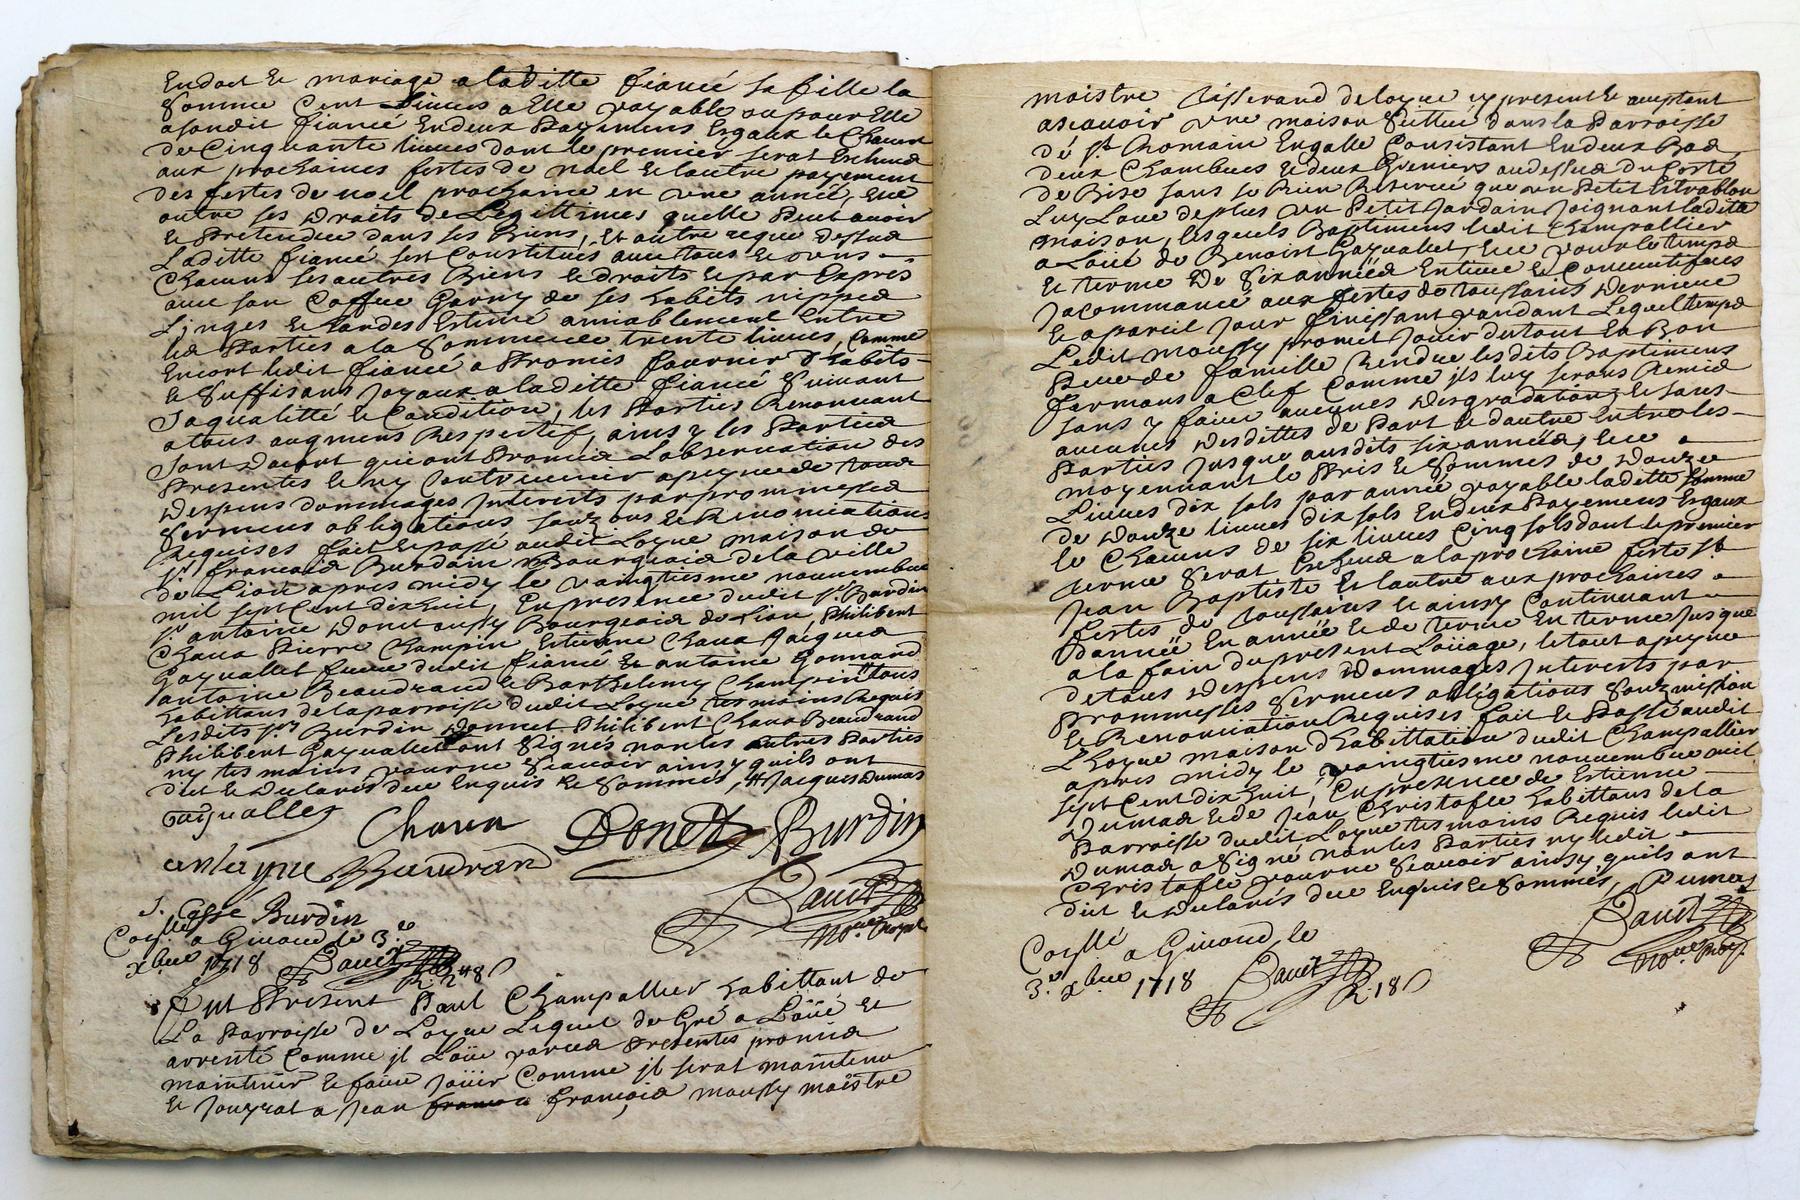 En dot et mariage a laditte fiancé sa fille la
Somme Cent Livres a Elle payable ou pour Elle
asondit fiancé En deux payemens Esgaux le Chacun
de Cinquante livres dont le premier serat
aux prochaines festes de noel et lautre payement
des festes de noel prochaine en une année, Et ce
outre ses droits de Legittimes quelle peut avoir
et pretendre dans ses Biens, Et outre ceque dessus
Laditte fiancé sest Constituée avec tous et uns
Chacuns ses autres Biens et droits et par Exprès
avec son Coffre Garny de ses habits nippes
Linges et hardes Estimé amiablement Entre
les parties a la Somme de trente livres, Comme
Encort ledit fiancé a promis fournir d'habits
et suffisans joyaux a laditte fiancé Suivant
Sa qualitté et Condition, les parties Renonceant
a tous augmens Respectif, ainsy les parties
sont dacort qui ont promis L'observation des
presentes et ny Contrevenir a peyne de tous
despens dommages Interests par prommesses
sermens obligations souz et Renonciations
Requises fait et passé audit Loyre maison de
sr. francois Burdin Bourgeois de la ville
de Lion apres midy le vaingtiesme nouvembre
mil sept Cent dixhuit, En presence dudit sr. Burdin
sr. antoine Donet aussy Bourgeois de Lion, Philibert
Chava Pierre Champin Estienne Chava Jacques
Gayuallet frere dudit fiancé et antoine Gonnand
antoine Beaudrand et Barthelemy Champin tous
habittans de la parroisse dudit Loyre tesmoins Requis
Lesdits srs. Burdin Donnet Philibert Chava Beaudrand
Philibert Gayuallet ont Signés non les autres parties
ny tesmoins pour ne Scavoir ainsy quils ont
dit et declarés de ce Enquis et Sommés, # Jacques Dumas
gayuallet Chava Donet Burdin
antoyne Baudran
Bauet
No.re Royal
J. Burdin
Con.llé a Givord le 3.e
xbre 1718 Bauet
R. 2#8s
Fut Present Paul Champallier habittant de
La parroisse de Loyre Lequel de Gré a Loüé et
arrenté Comme jl Loüe par ces presentes promis
maintenir et faire joüir Comme jl serat maintenu
et jouyrat a Jean francois mousy maistre
maistre Tisserand de loyre cy present et aceptant
ascavoir une maison Scittué dans la parroisse
de St. Romain En galle Consistant En deux Bas
deux Chambres et deux Greniers au dessus du Costé
de Bise sans se Rien Reservé que un petit Estrablon
Luy Loüe de plus un petit Jardain Joignant laditte
maison, lesquels Baptimens ledit Champallier
a Loüé de Benoist Gayuallet, Et ce pour le temps
et terme de Six années Entiere et Consecutifves
Ja commancé aux festes de toussaints derniere
et a pareil Jour finissant pandant Lequel temps
Ledit mousy promet jouir du tout En Bon
Pere de famille Rendre lesdits Baptimens
fermans a Clef Comme jls luy serons Remis
sans y faire aucunes desgradations et sans
aucunes desdittes de part et dautre Entre les
parties jusque ausdits six années, Et ce
moyennant le pris et Sommes de douze
Livres dix sols par année payable laditte Somme
de douze livres dix sols En deux payemens Esgaux
le Chacuns de six livres Cinq sols dont le premier
terme serat Escheus a la prochaine feste St.
Jean Baptiste et lautre aux prochaines
festes de toussaints et ainsy Continuant
Dannéé En annéé et de terme En terme Jusque
a la fain du present Loüage, le tout a peyne
de tous despens dommages Interests par
prommesses sermens obligations Souzmission
et Renonciation Requises fait et Passé audit
Lhoyre maison dhabittation dudit Champallier
apres midy le vaingtiesme nouvembre mil
sept Cent dixhuit, En presence de Estienne
Dumas et de Jean Christofle habittans de la
Parroisse dudit Loyre tesmoins Requis ledit
Dumas a Signé non les Parties ny ledit
Christofle pour ne Scavoir ainsy quils ont
dit et declarés de ce Enquis et Sommés, Dumas
Bauet
No.re Roy.
Con.llé a Givord, le
3.e xbre 1718 Bauet
R. 18s